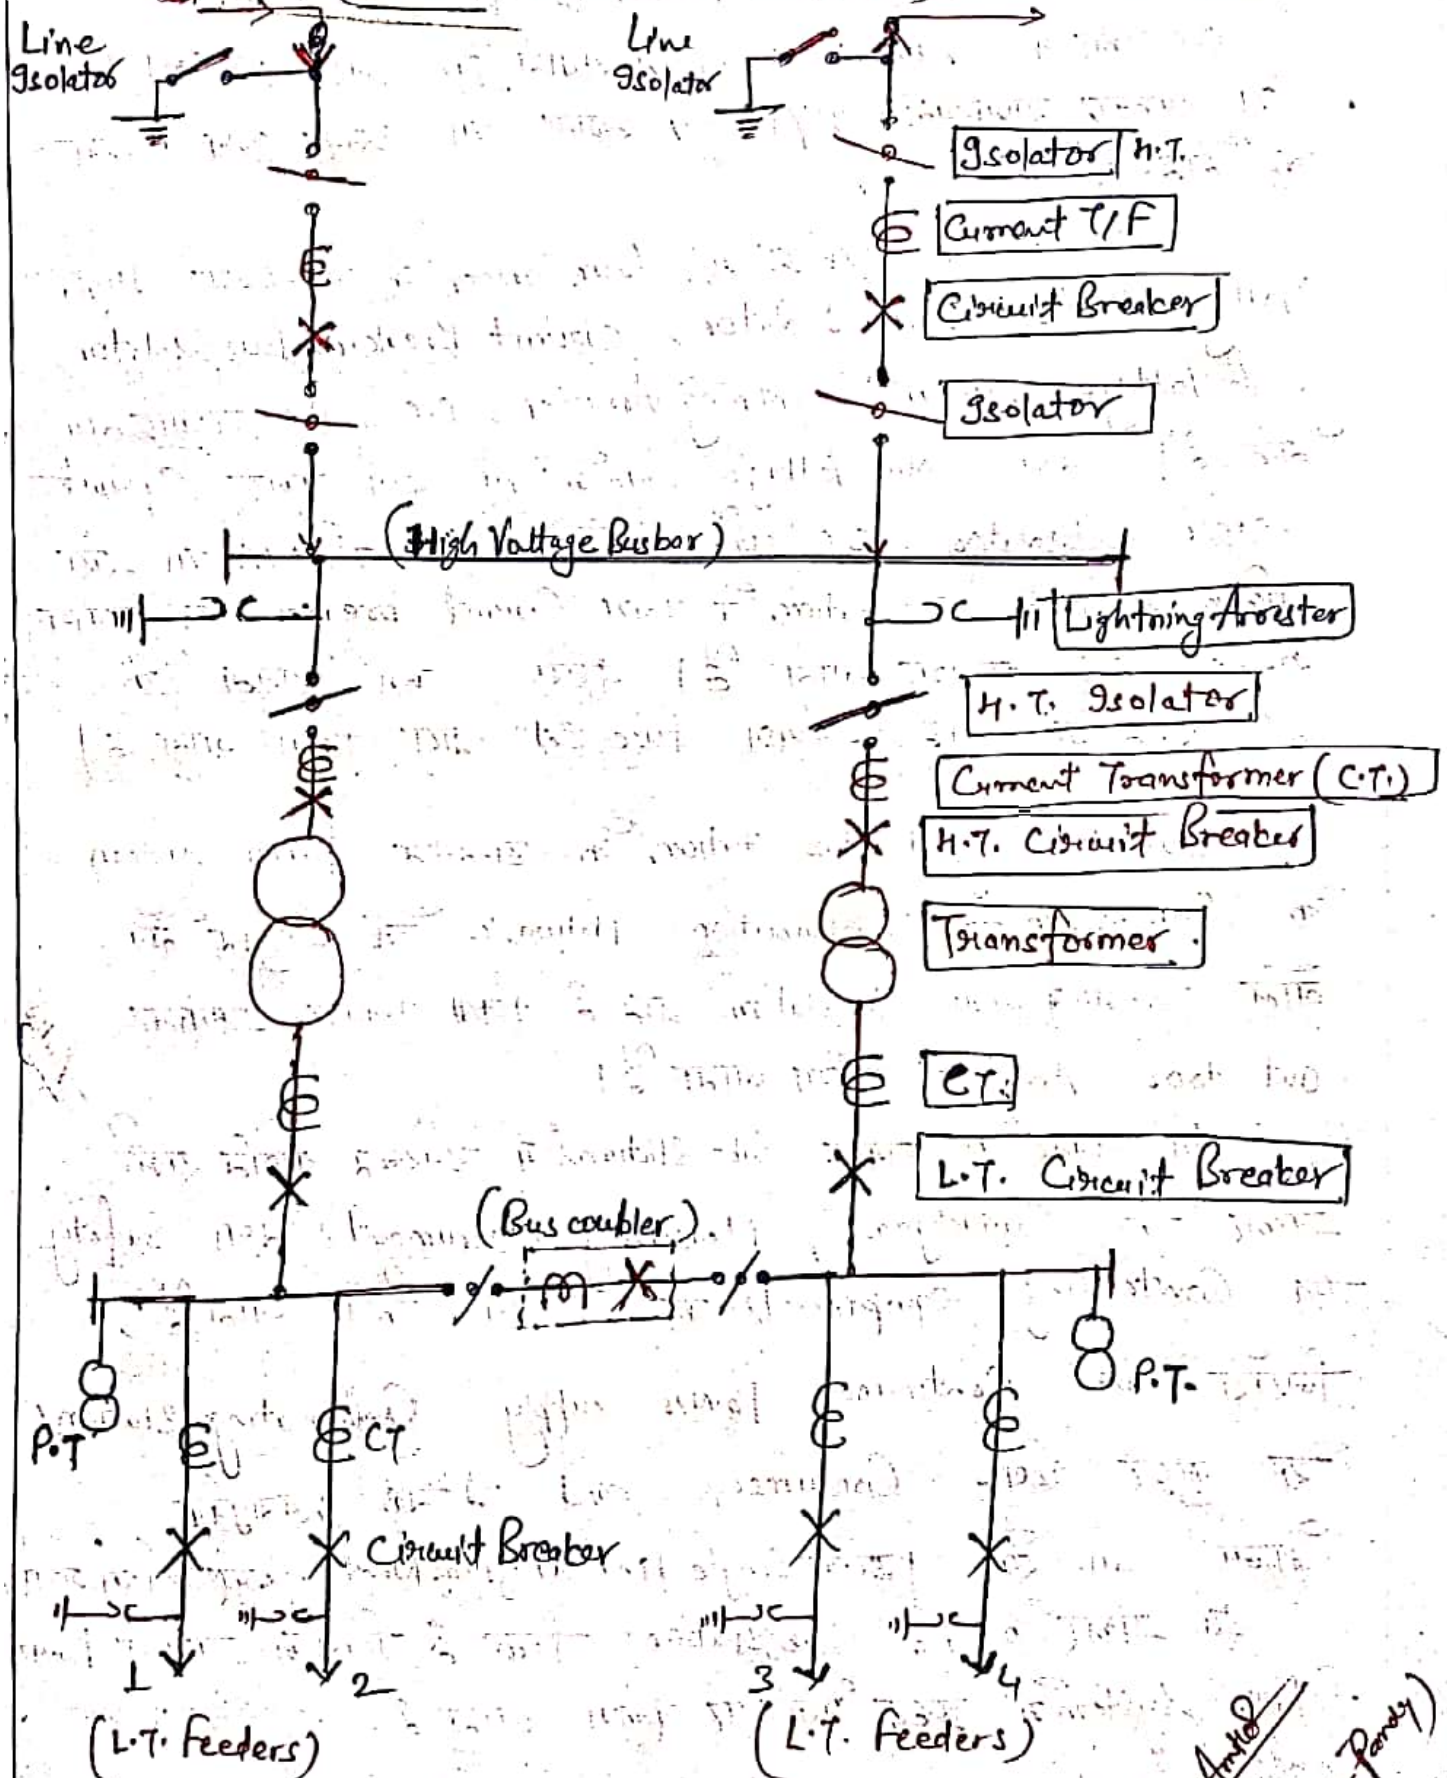 Line
Isolator
Line
Isolator
Isolator H.T.
Current T/F
Circuit Breaker
Isolator
(High Valtage Busbar)
Lightning Arrester
H.T. Isolator
Current Transformer (C.T.)
H.T. Circuit Breaker
Transformer.
CT.
L.T. Circuit Breaker
(Bus coubler)
P.T
CT.
P.T.
Circuit Breaker.
1 2 3 4
(L.T. Feeders)
(L.T. Feeders)
Pandy)